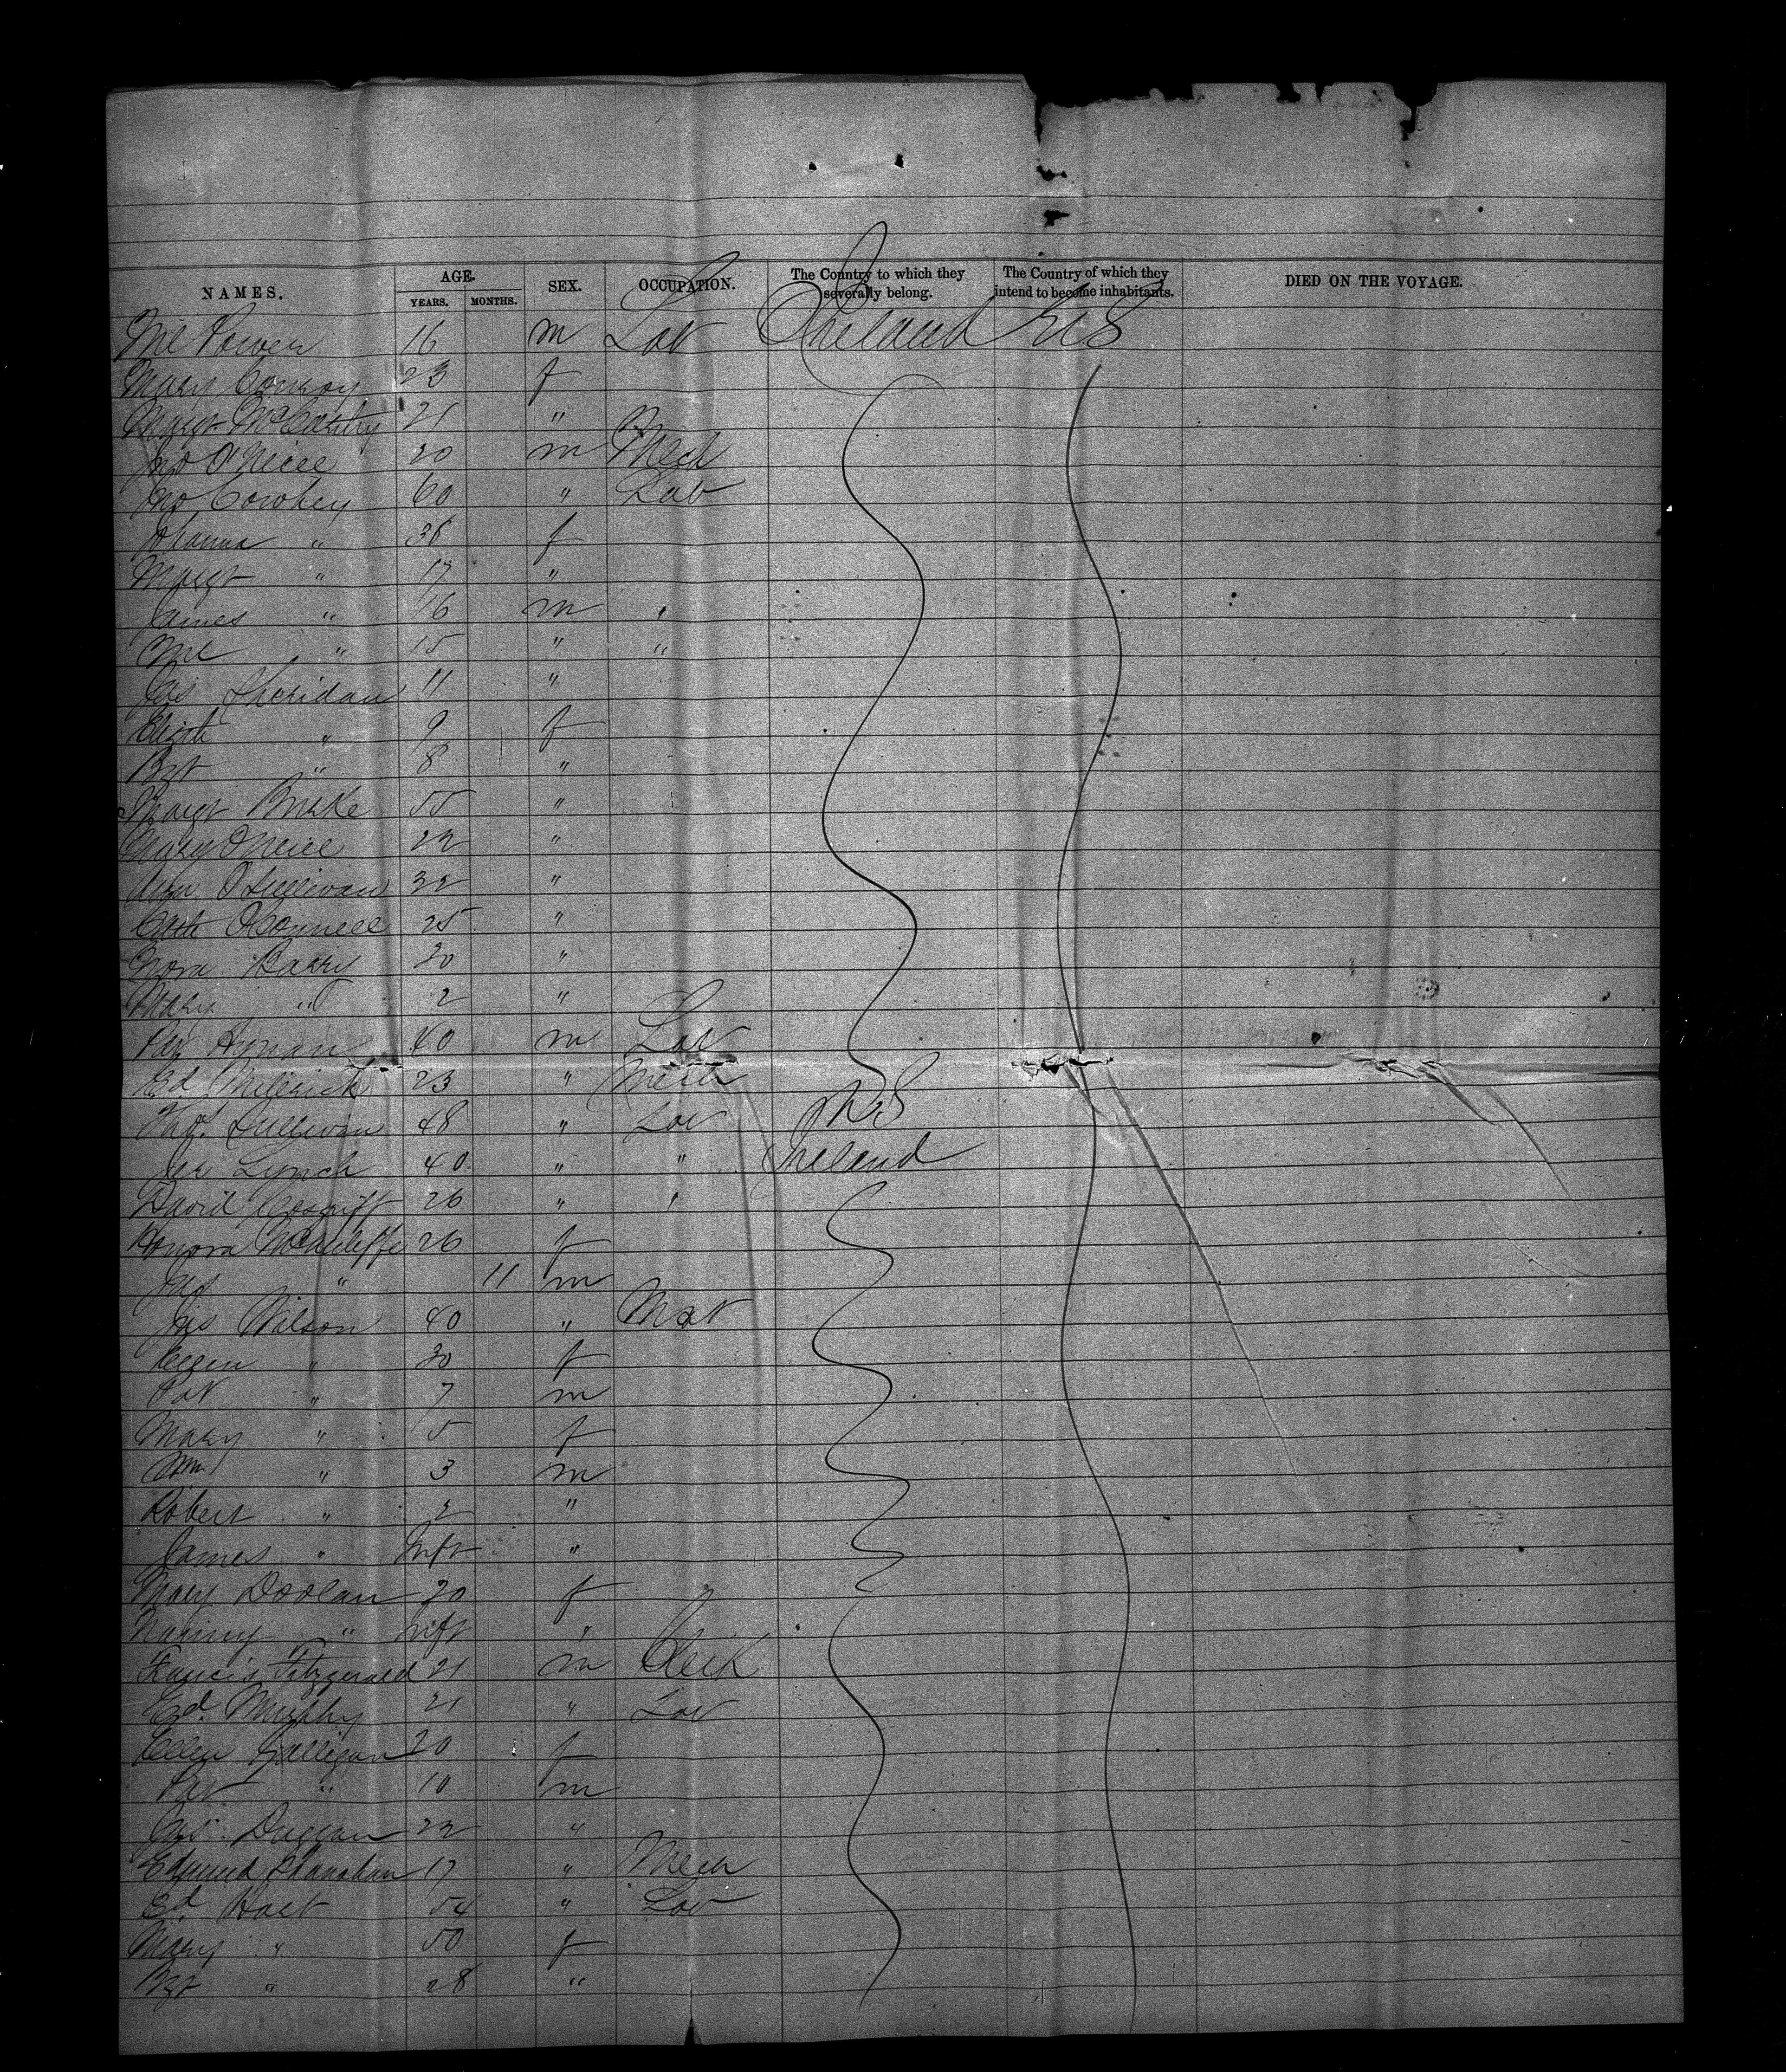 NAMES. AGE. SEX. OCCUPATION. The Country to which they severally belong. The Country of which they intend to become inhabitants. DIED ON THE VOYAGE.
YEARS. MONTHS.
Ml Power 16 m Lab Ireland U S
Mary Conroy 23 f
Margt McCarthy 21 "
Jno O'Neill 20 m Mech
Jno Cowhey 60 " Lab
Johanna " 38 f
Margt " 17 "
James " 16 m "
Ml " 15 " "
Jas Sheridan 11 "
Elizth " 9 f
Bgt " 8 "
Margt Burke 55 "
Mary O'Neill 22 "
Ann O'Sullivan 32 "
Cath O'Connell 25 "
Nora Barry 30 "
Mary " 2 "
Pat Hynan 40 m Lab
Ed Millrick 23 " Mech
Thos Sullivan 48 " Lab U S
Jer Lynch 40 " " Ireland
David Cosgriff 26 " "
Honora McAuliffe 26 f
Jno " 11 m
Jas Wilson 40 "
Ellen " 30 f
Pat " 7 m
Mary " 5 f
Wm " 3 m
Robert " 2 "
James " Inft "
Mary Doolan 30 f
Nanny " Inft "
Francis Fitzgerald 21 m Clerk
Ed Murphy 21 " Lab
Ellen Galligan 20 f
Pat " 10 m
Jas Duggan 22 "
Edmund Shanahan 17 " Mech
Ed Hart 54 " Lab
Mary " 50 f
Bgt " 28 "